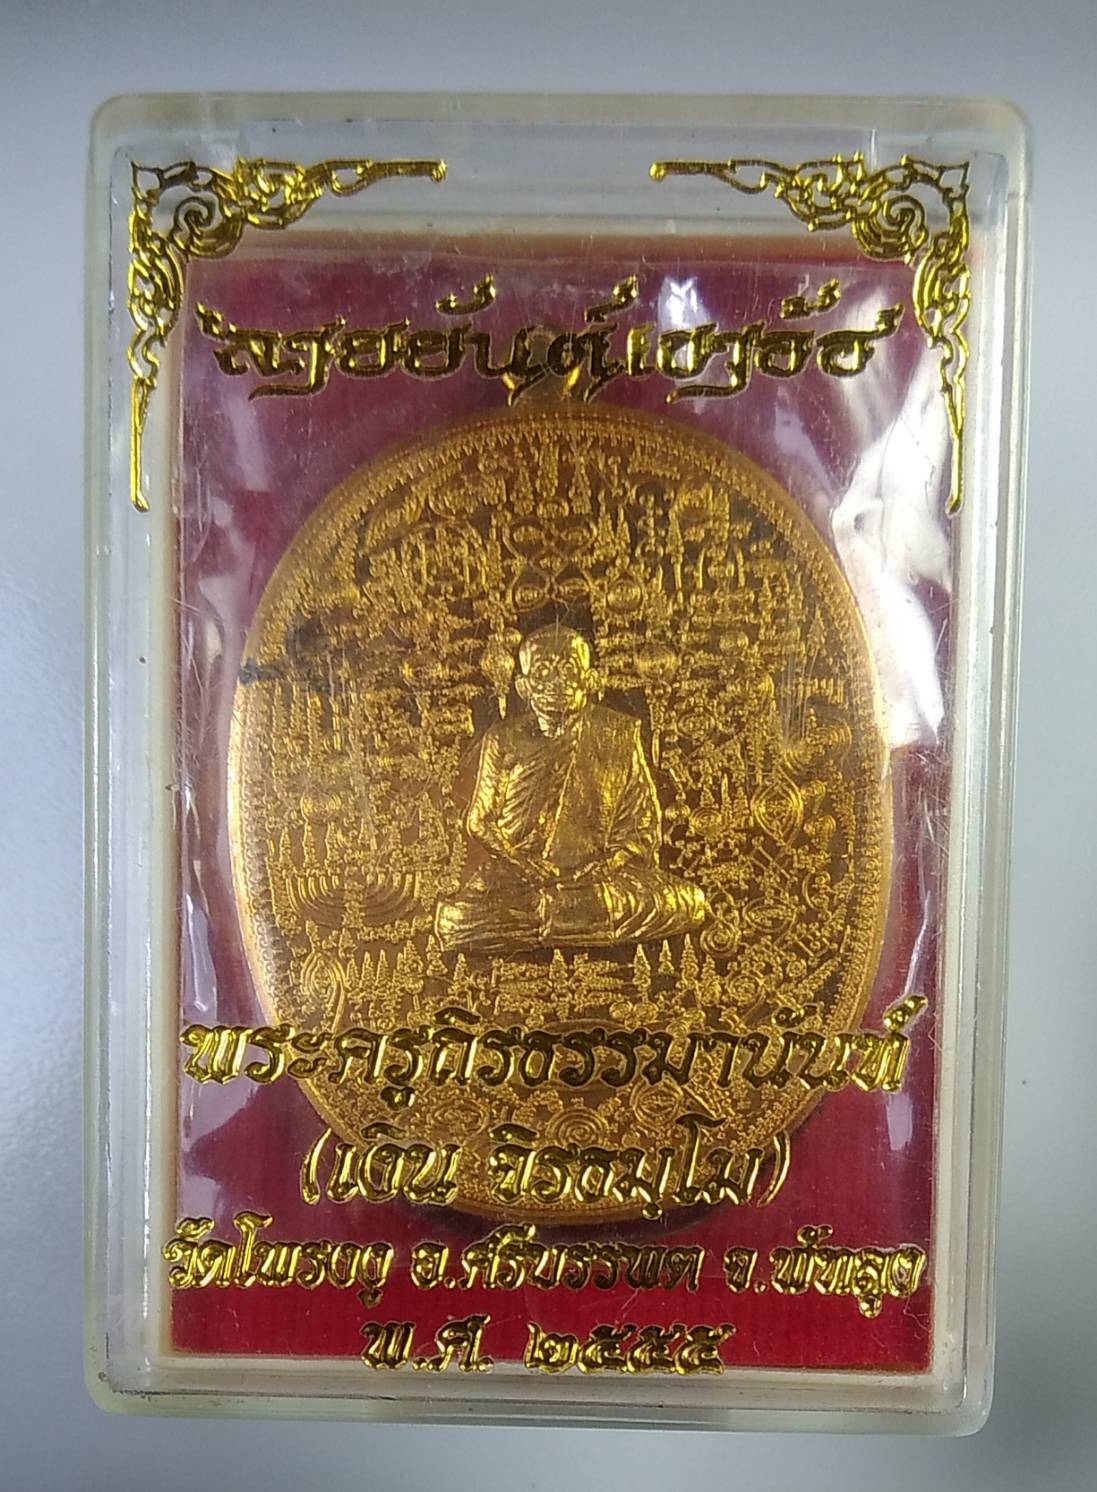 ลายยันต์เขาอ้อ
พระครูถิรธรรมานันท์
(เงิน จิรธมฺโม)
วัดโพรงงู อ.ศรีบรรพต จ.พัทลุง
พ.ศ. ๒๕๕๕